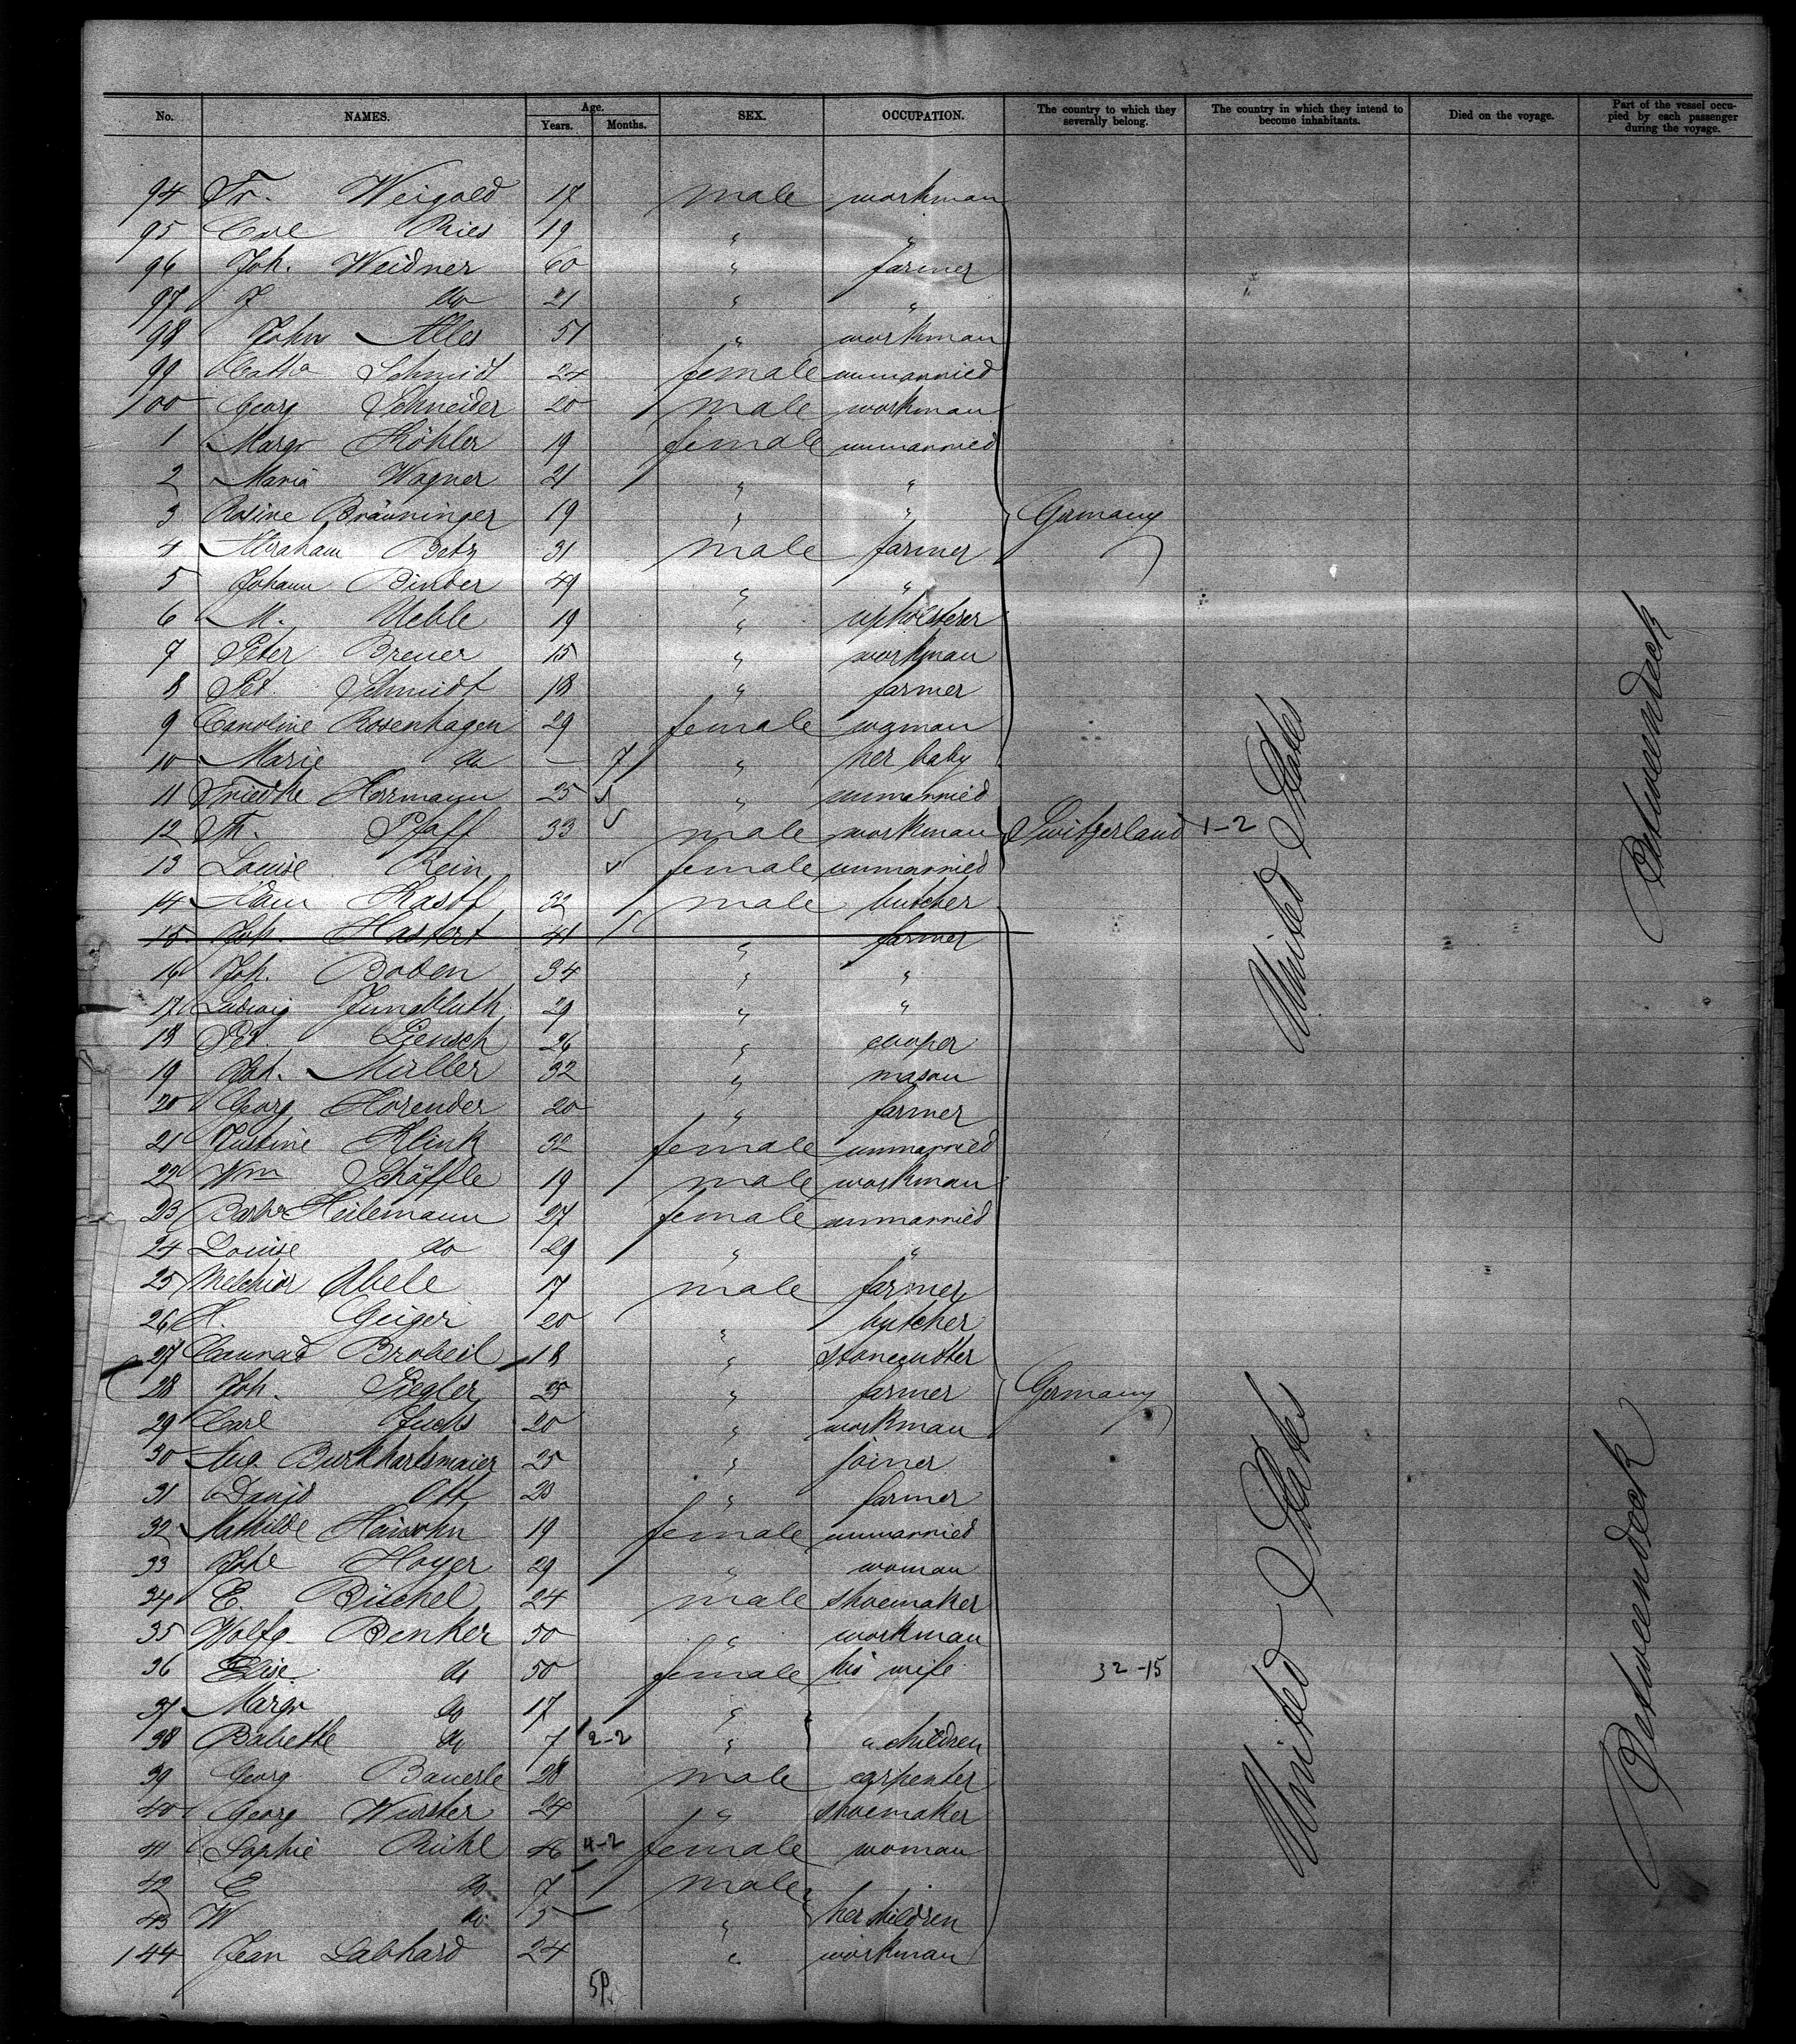 No. NAMES. Age. Years. Months. SEX. OCCUPATION. The country to which they severally belong. The country in which they intend to become inhabitants. Died on the voyage. Part of the vessel occupied by each passenger during the voyage.
94 Fr. Weigold 17 male workman
95 Carl Ries 19 " "
96 Joh. Weidner 60 " farmer
97 J do 21 " "
98 John Alles 51 " workman
99 Catha Schmidt 24 female unmarried
100 Georg Schneider 20 male workman
1 Margr Köhler 19 female unmarried
2 Maria Wagner 21 " "
3 Rosine Bräuninger 19 " " Germany
4 Abraham Betz 31 male farmer
5 Johann Binder 49 " "
6 M. Ueble 19 " upholsterer
7 Peter Breuer 15 " workman
8 Pet. Schmidt 18 " farmer
9 Caroline Rosenhagen 29 female woman
10 Marie do – 7 " her baby
11 Friedke Herrmann 25 " unmarried
12 Th. Pfaff 33 male workman Switzerland 1-2
13 Louise Rein female unmarried
14 Adam Kastf 32 male butcher
15 Joh. Hastert 41 " farmer
16 Joh. Boden 34 " "
17 Ludwig Jungbluth 29 " "
18 Pet. Liensch 26 " cooper
19 Joh. Müller 32 " mason
20 Georg Horender 20 " farmer
21 Justine Klink 32 female unmarried
22 Wm Schäffle 19 male workman
23 Barbr Heilemann 27 female unmarried
24 Louise do 29 " "
25 Melchior Abele 17 male farmer
26 Geiger 20 " butcher
27 Conrad Brobeil 18 " stonecutter
28 Joh. Siegler 25 " farmer Germany
29 Carl Fuchs 20 " workman
30 Aug. Burkhartsmaier 25 " joiner
31 David Ott 23 " farmer
32 Mathilde 19 female unmarried
33 Hoyer 29 " woman
34 E. Büchel 24 male shoemaker
35 Wolfg. Benker 50 " workman
36 Elise do 50 female his wife 32-15
37 Margr do 17 "
38 Babette do 7 2-2 " " children
39 Georg Bauerle 28 male carpenter
40 Georg Wurster 24 " shoemaker
41 Sophie Rühl 46 4-2 female woman
42 E do 7 male
43 W do 5 " her children
144 Jean Labhard 24 " workman
5P.
United States
Betweendeck
United States
Betweendeck